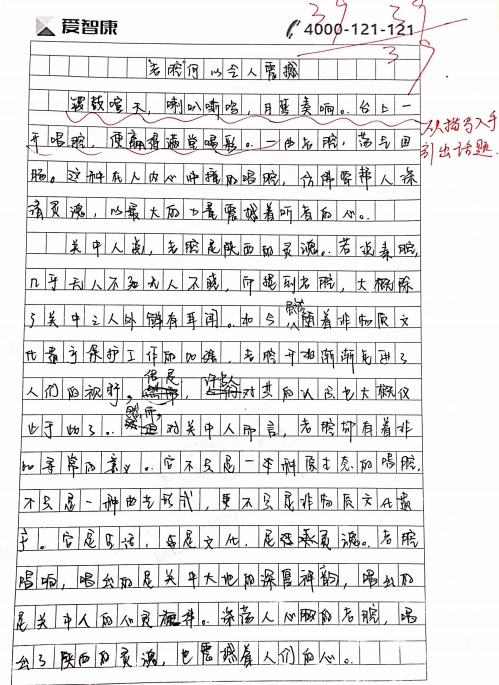 爱智康
4000-121-121
39
39
39
老腔何以令人震撼
锣鼓喧天，喇叭嘶鸣，月琴奏响。台上一
开唱腔，便赢得满堂喝彩。一曲老腔，荡气回
肠。这种在人内心中撞的唱腔，仿佛要将人
灵魂，以最大的力量震撼着听者的心。
从描写入手
引出话题.
关中人说，老腔是陕西的灵魂。若说秦腔，
几乎无人不知无人不晓，而提到老腔，大概除
了关中之人外鲜有耳闻。如今，随着非物质文
化遗产保护工作的加强，老腔开始渐渐走进了
人们的视野，但是，许多人对其的认识也大概仅
止于此了。然而，对关中人而言，老腔却有着非
比寻常的意义。它不只是一种原生态的唱腔，
不只是一种曲艺形式，更不只是非物质文化遗
产。它是生活，是文化，是灵魂。老腔
唱响，唱出的是关中大地的深厚神韵，唱出的
是关中人的心灵。荡人心魄的老腔，唱
出了陕西的灵魂，也震撼着人们的心。